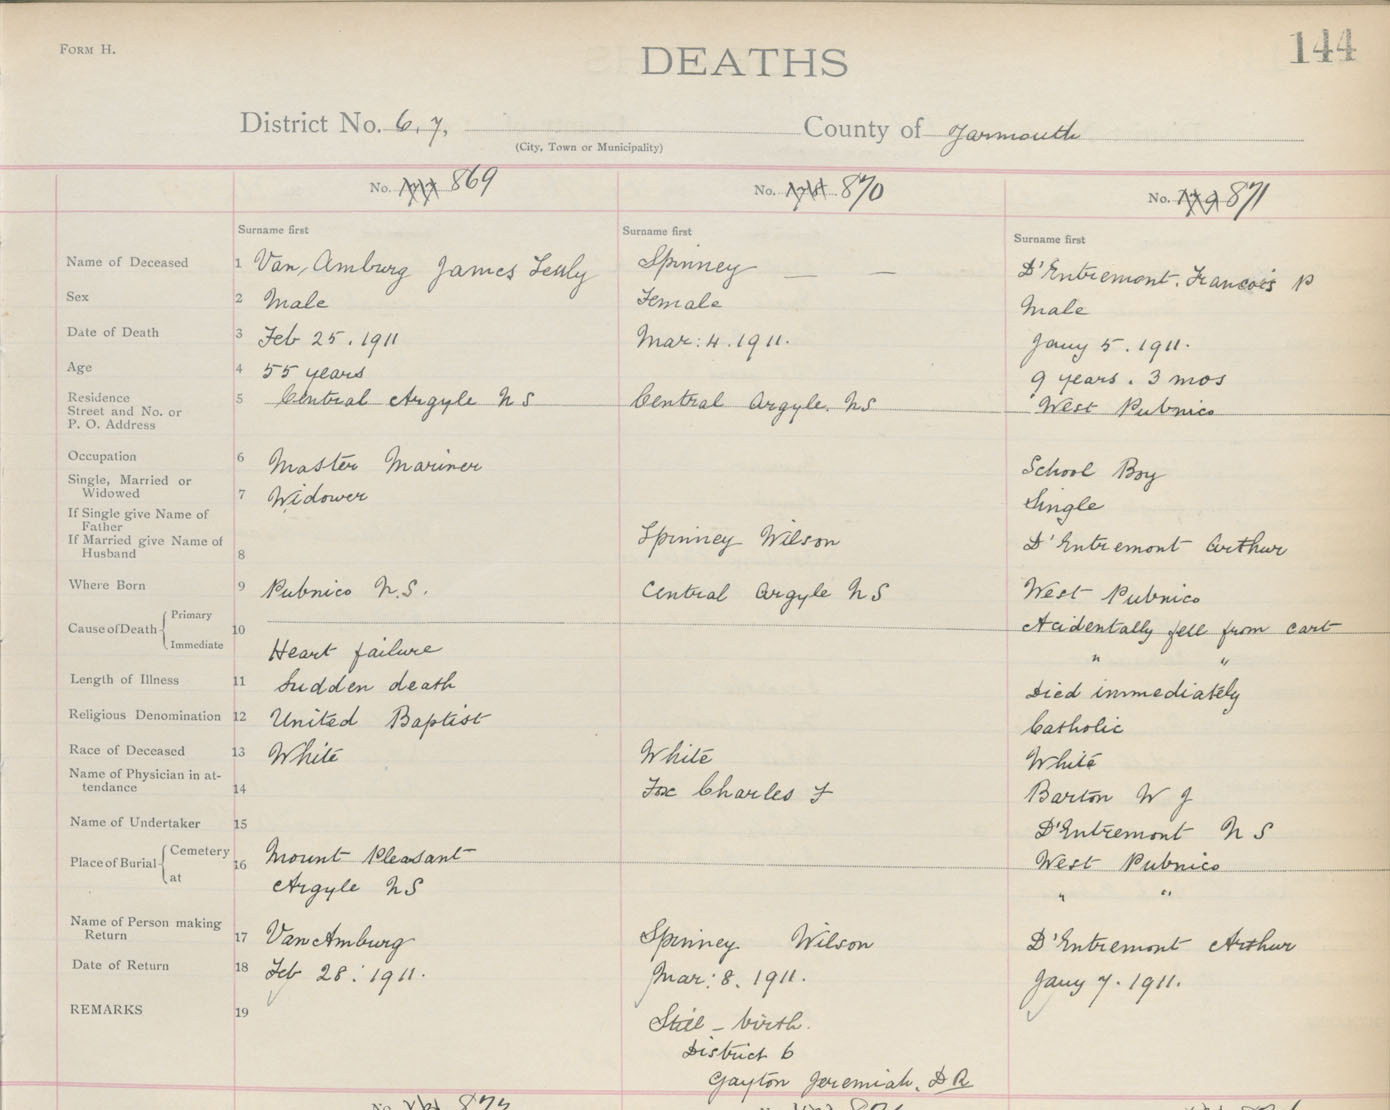 FORM H.
DEATHS
144
District No. 6, 7,
County of Yarmouth
(City, Town or Municipality)
No. 869
No. 870
No. 871
Surname first
Surname first
Surname first
Name of Deceased 1 Van Amburg James Lesly
Spinney — —
D'Entremont. Francois P
Sex 2 Male
Female
Male
Date of Death 3 Feb 25. 1911
Mar: 4. 1911.
Jany 5. 1911.
Age 4 55 years
9 years. 3 mos
Residence 5 Central Argyle N S
Central Argyle. N S
West Pubnico
Street and No. or
P. O. Address
Occupation 6 Master Mariner
School Boy
Single, Married or
Widowed 7 Widower
Single
If Single give Name of
Father
If Married give Name of
Husband 8
Spinney Wilson
D'Entremont Arthur
Where Born 9 Pubnico N.S.
Central Argyle N S
West Pubnico
Cause of Death 10
Primary
Acidentally fell from cart
Immediate
Heart failure
" "
Length of Illness 11 Sudden death
Died immediately
Religious Denomination 12 United Baptist
Catholic
Race of Deceased 13 White
White
White
Name of Physician in at-
tendance 14
Fox Charles F
Barton W J
Name of Undertaker 15
D'Entremont N S
Place of Burial 16
Cemetery
Mount Pleasant
West Pubnico
at
Argyle N S
" "
Name of Person making
Return 17 Van Amburg
Spinney Wilson
D'Entremont Arthur
Date of Return 18 Feb 28: 1911.
Mar: 8. 1911.
Jany 7. 1911.
REMARKS 19
Still - birth.
District 6
Gayton Jeremiah. D R
No.
No.